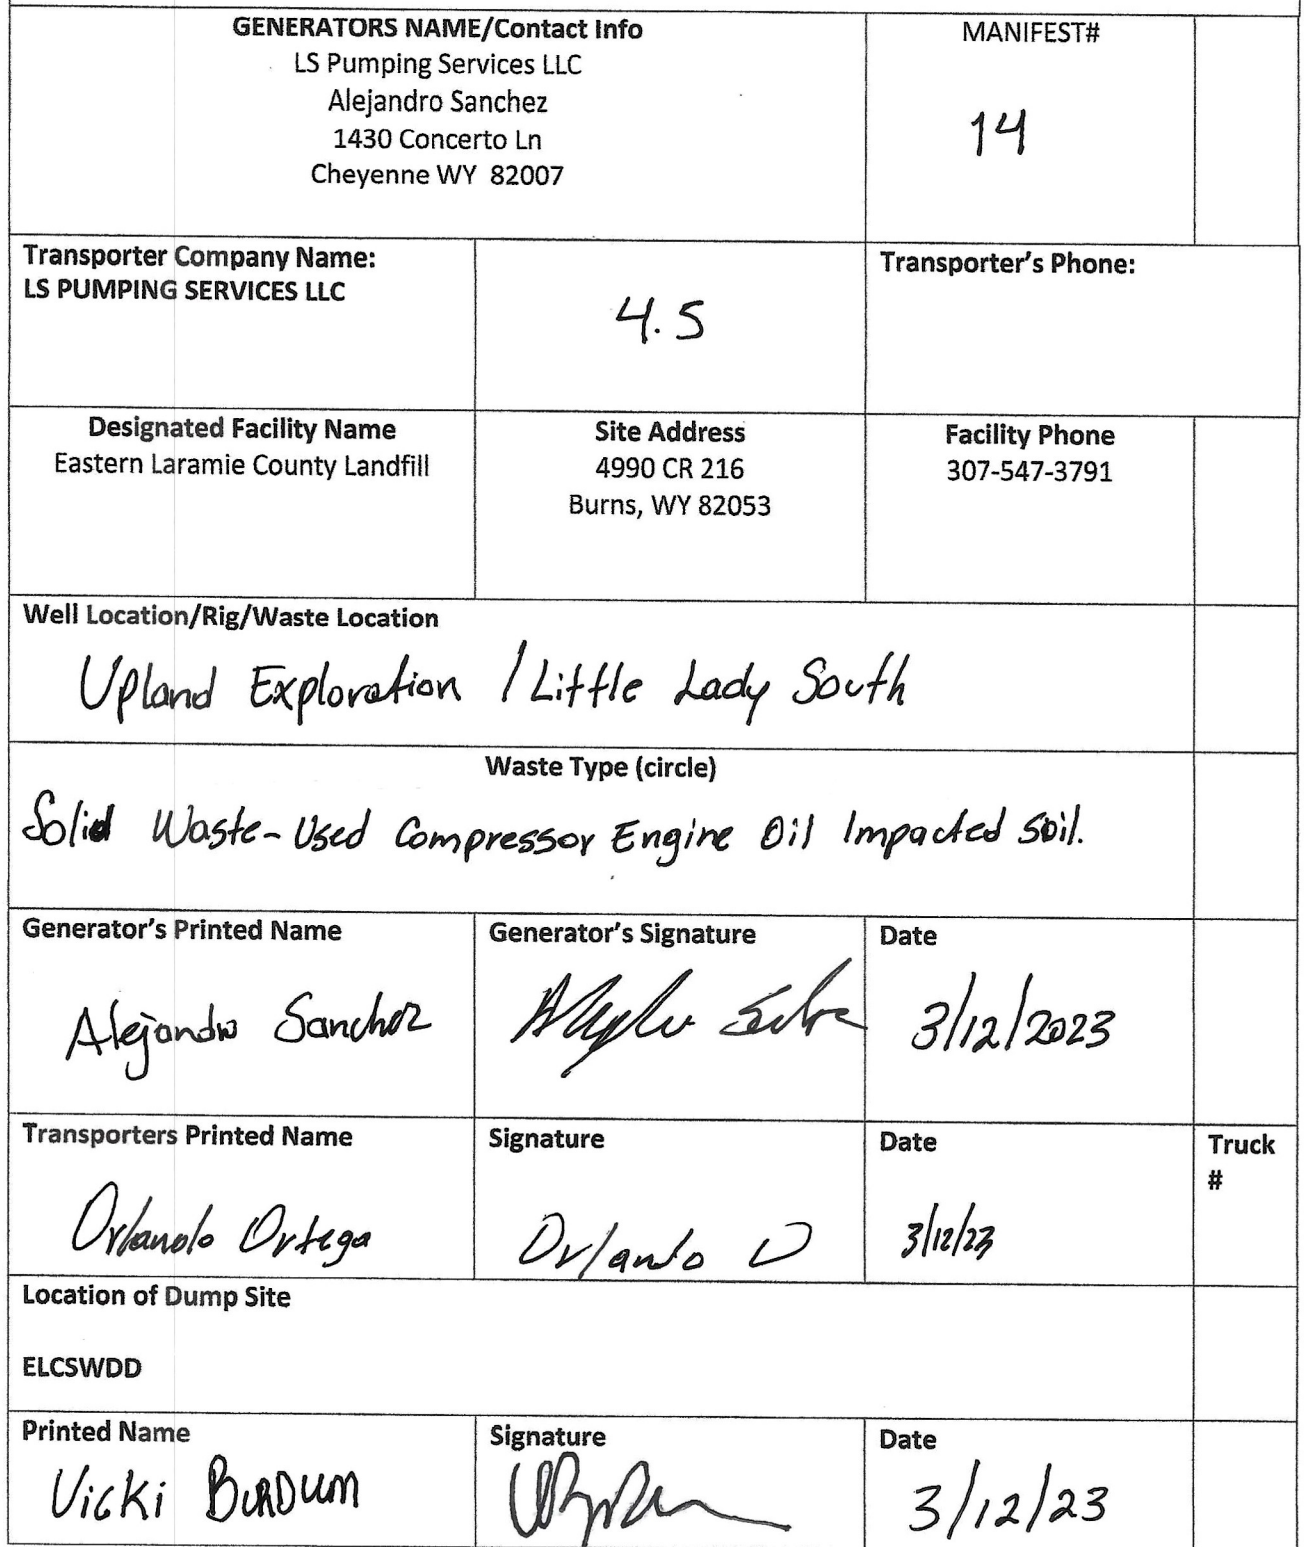 GENERATORS NAME/Contact Info
LS Pumping Services LLC
Alejandro Sanchez
1430 Concerto Ln
Cheyenne WY 82007
MANIFEST#
14
Transporter Company Name:
LS PUMPING SERVICES LLC
4.5
Transporter's Phone:
Designated Facility Name
Eastern Laramie County Landfill
Site Address
4990 CR 216
Burns, WY 82053
Facility Phone
307-547-3791
Well Location/Rig/Waste Location
Upland Exploration / Little Lady South
Waste Type (circle)
Solid Waste- Used Compressor Engine Oil Impacted Soil.
Generator's Printed Name
Alejandro Sanchez
Generator's Signature
Date
3/12/2023
Transporters Printed Name
Orlando Ortega
Signature
Orlando O
Date
3/12/23
Truck
#
Location of Dump Site
ELCSWDD
Printed Name
Vicki
Signature
Date
3/12/23